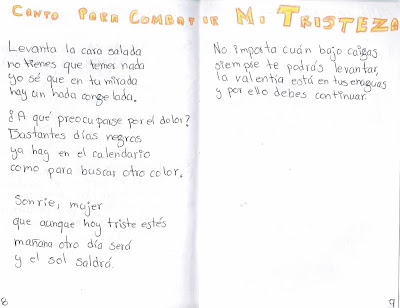 CANTO PARA COMBATIR MI TRISTEZA
Levanta la cara salada
no tienes que temer nada
yo sé que en tu mirada
hay un hada congelada.
¿A qué preocuparse por el dolor?
Bastantes días negros
ya hay en el calendario
como para buscar otro color.
Sonríe, mujer
que aunque hoy triste estés
mañana otro día será
y el sol saldrá.
8
No importa cuán bajo caigas
siempre te podrás levantar,
la valentía está en tus enaguas
y por ello debes continuar.
9